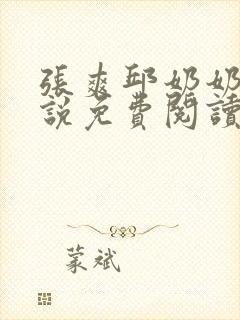 張爽邱奶奶
說免費閱讀
蒙斌